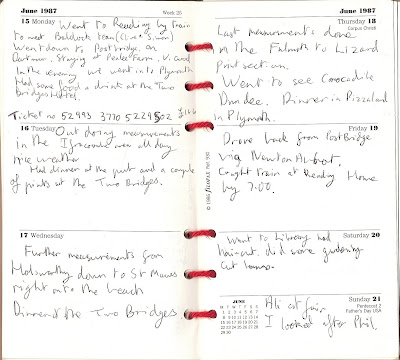 June 1987
Week 25
15 Monday
Went to Reading by train
to meet Baldock team (Clive + Simon)
Went down to Postbridge, on
Dartmoor. Staying at Penlee Farm. V. Good
In the evening we went into Plymouth
Had some food & drink at the Two
Bridges Hotel.
Ticket no 52993 3770 5229502 £106
16 Tuesday
Out doing measurements
in the Ilfracombe area all day
Nice weather
Had dinner at the pub and a couple
of pints at the Two Bridges.
17 Wednesday
Further measurements from
Holsworthy down to St Mawes
right into the beach
Dinner at the Two Bridges
June 1987
Thursday 18
Corpus Christi
Last measurements done
in the Falmouth to Lizard
Point section.
Went to see Crocodile
Dundee. Dinner in Pizzaland
in Plymouth.
Friday 19
Drove back from PostBridge
via Newton Abbot.
Caught train at Reading Home
by 7.00.
Saturday 20
Went to Library had
haircut. Did some gardening
Cut lawns.
Sunday 21
Pentecost 2
Father's Day, USA
Ali at fair
I looked after Phil.
JUNE
M T W T F S S
1 2 3 4 5 6 7
8 9 10 11 12 13 14
15 16 17 18 19 20 21
22 23 24 25 26 27 28
29 30
© 1986 FILOFAX